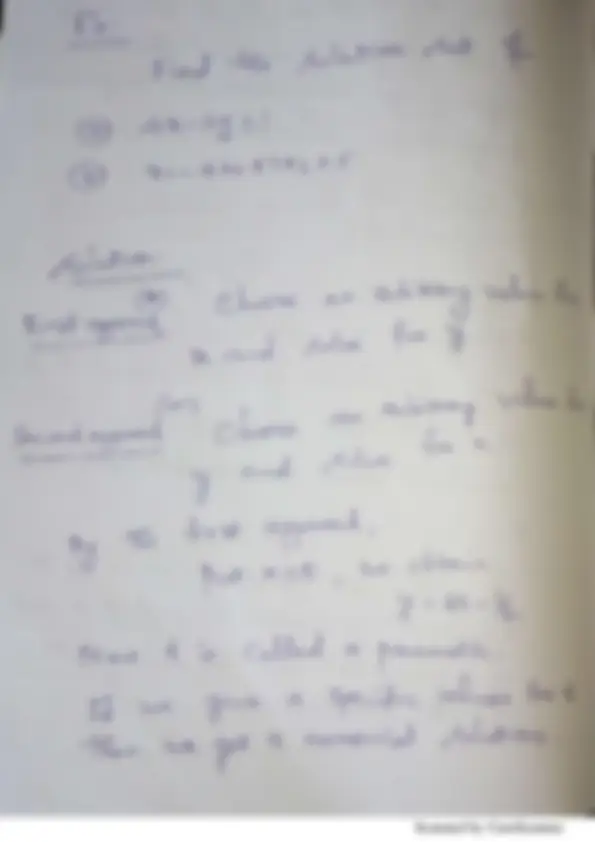 Ex
Find the solution set of
(a)
(b)
Solution
(a) Choose an arbitrary value for
First approach
x and solve for y
(or) Choose an arbitrary value for
Second approach
y and solve for x
By the first approach,
Put x = t, we obtain
Here t is called a parameter
If we give a specific values for t
Then we get a numerical solutions
Scanned by CamScanner